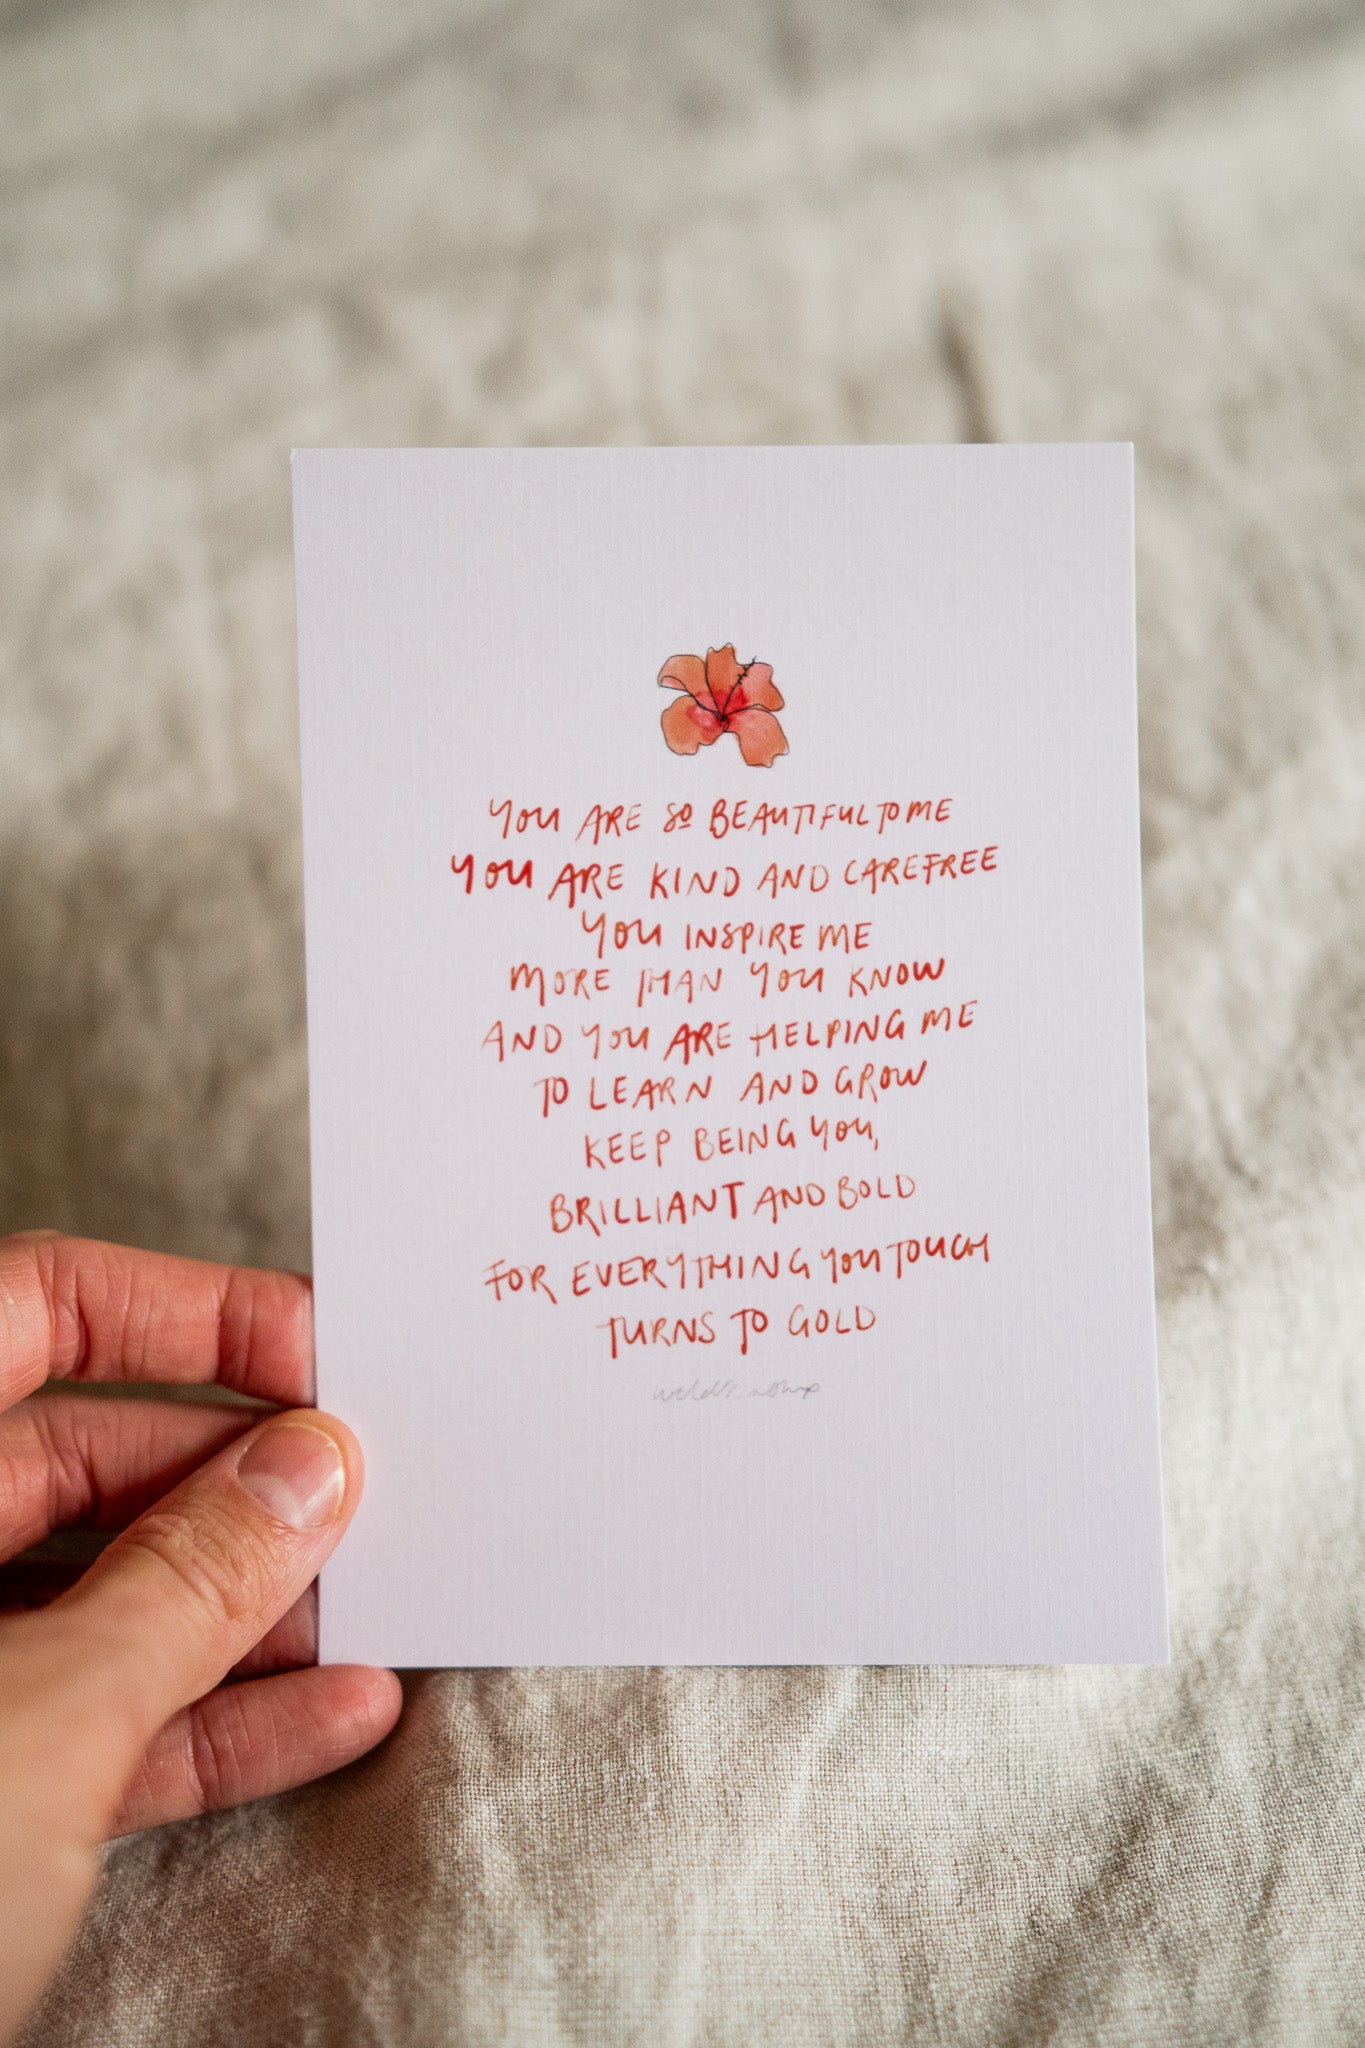 YOU ARE SO BEAUTIFUL TO ME
YOU ARE KIND AND CAREFREE
YOU INSPIRE ME
MORE THAN YOU KNOW
AND YOU ARE HELPING ME
TO LEARN AND GROW
KEEP BEING YOU,
BRILLIANT AND BOLD
FOR EVERYTHING YOU TOUCH
TURNS TO GOLD